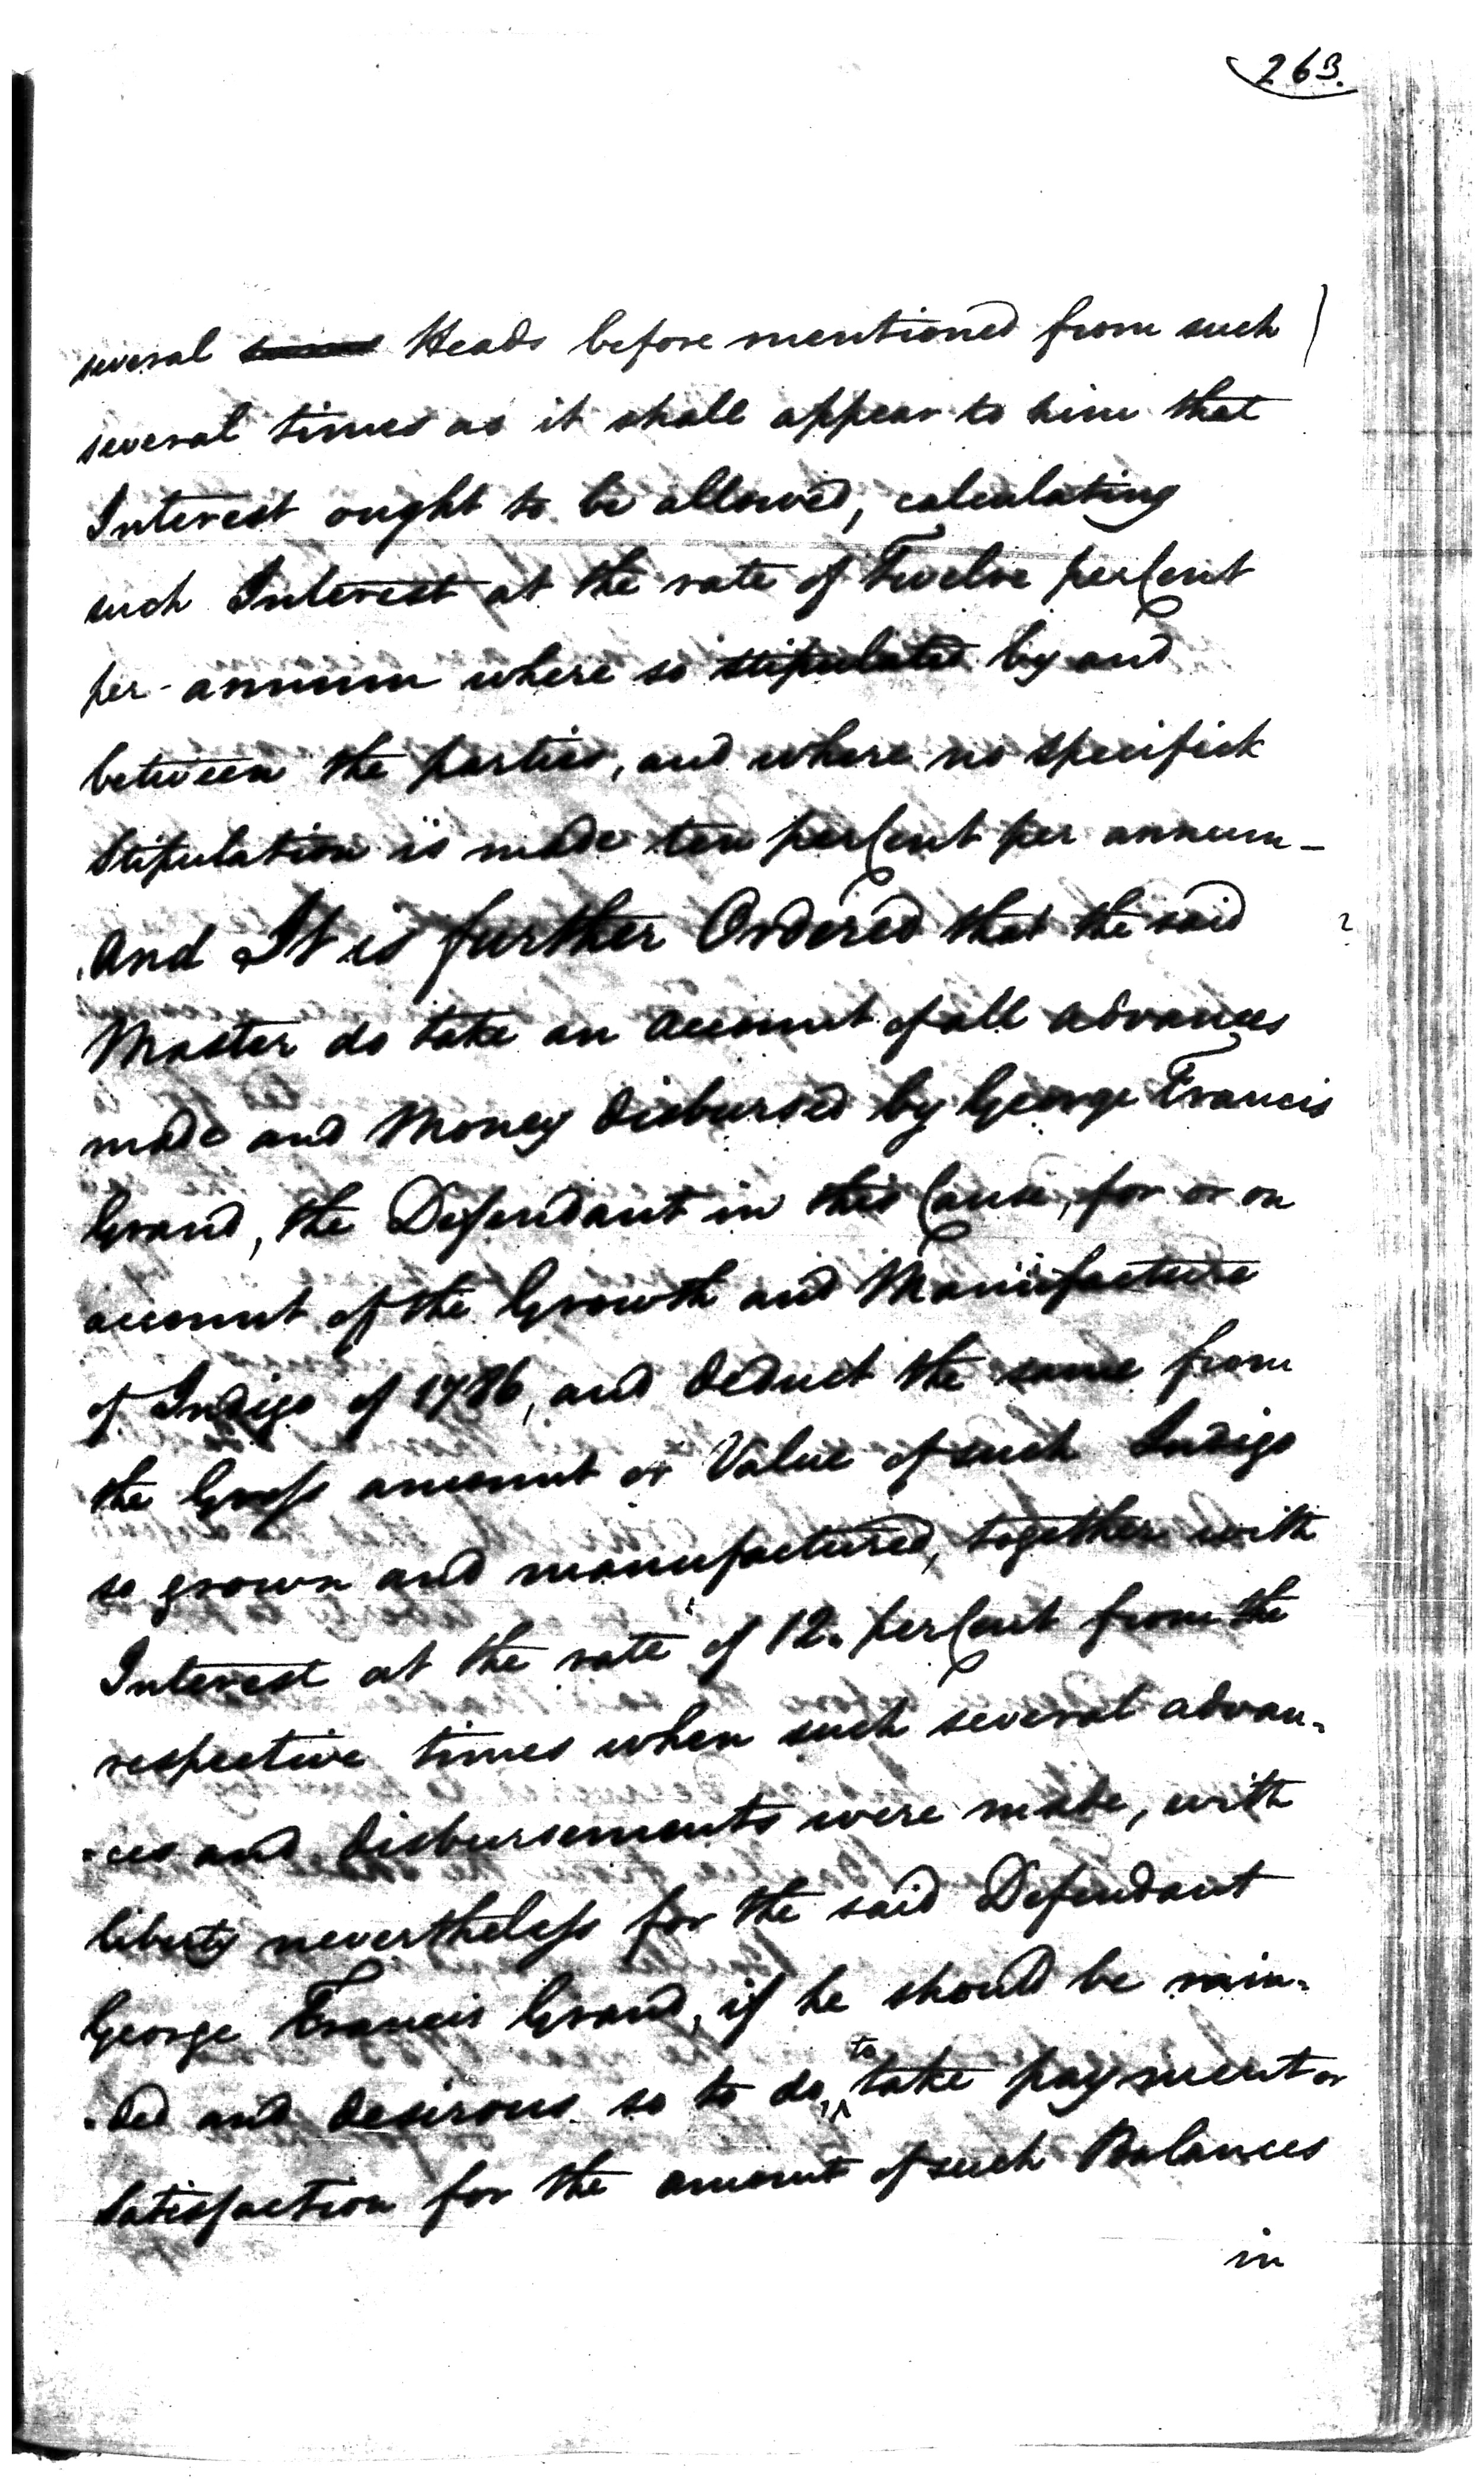 263.
several Heads before mentioned from such
several times as it shall appear to him that
Interest ought to be allowed, calculating
such Interest at the rate of Twelve perCent
per-annum where so stipulated by and
between the parties, and where no specifick
Stipulation is made ten perCent per annum-
And It is further Ordered that the said
Master do take an account of all advances
made and Money disbursed by George Francis
Grand, the Defendant in this Cause, for or on
account of the Growth and Manufacture
of Indigo of 1786, and deduct the same from
the Gross amount or Value of such Indigo
so grown and manufactured, together with
Interest at the rate of 12. perCent from the
respective times when such several advan-
-ces and disbursements were made, with
liberty nevertheless for the said Defendant
George Francis Grand, if he should be min-
-ded and desirous so to do, to take payment or
Satisfaction for the amount of such Balances
in